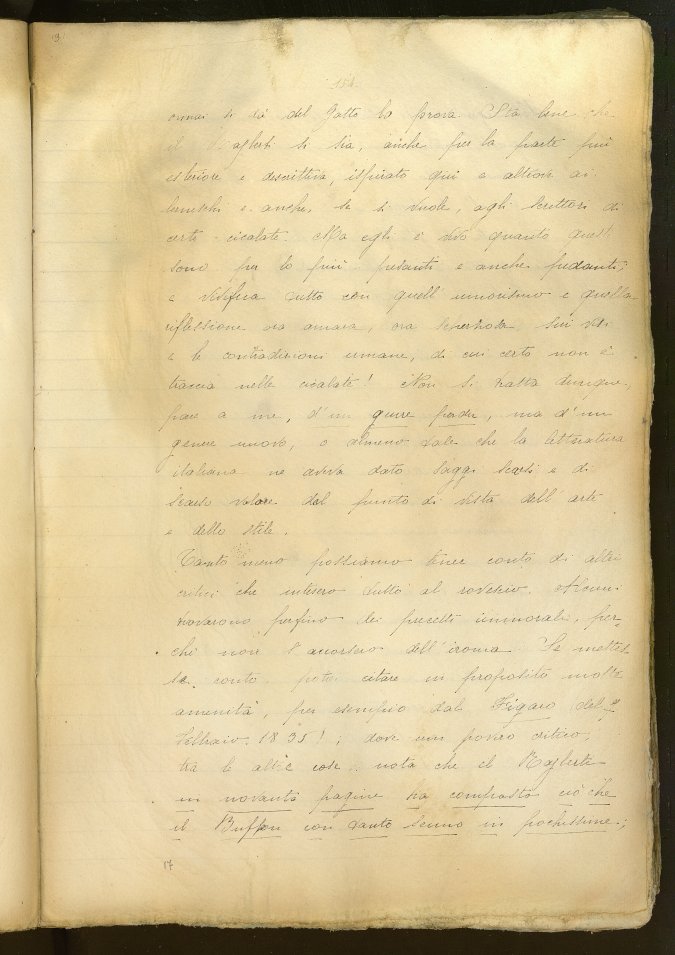 151
ormai si dà del Gatto lo prova. Sta bene che
il Raglerti si sia, anche per la parte più
esteriore e descrittiva, ispirato qui e altrove ai
berneschi e anche, se si vuole, agli scrittori di
certe cicalate. Ma egli è vivo quanto quest
sono per lo più pedanti e anche pedanti;
e vivifica tutto con quell'umorismo e quella
riflessione ora amara, ora scherzosa sui vizi
e le contradizioni umane, di cui certo non è
traccia nelle cicalate! Non si tratta dunque,
pare a me, d'un genere perdu, ma d'un
genere nuovo, o almeno tale che la letteratura
italiana ne aveva dato saggi scarsi e di
scarso valore dal punto di vista dell'arte
e dello stile.
Tanto meno possiamo tener conto di altri
critici che intesero tutto al rovescio. Alcuni
trovarono perfino dei precetti immorali, per-
chè non s'accorsero dell'ironia. Se mettes
se conto potrei citare in proposito molte
amenità, per esempio dal Figaro del 9
Febbraio 1895!; dove un povero critico,
tra le altre cose nota che il Raglerti
in novanta pagine ha comprosto ciò che
il Buffon con tanto senno in pochissime;
17